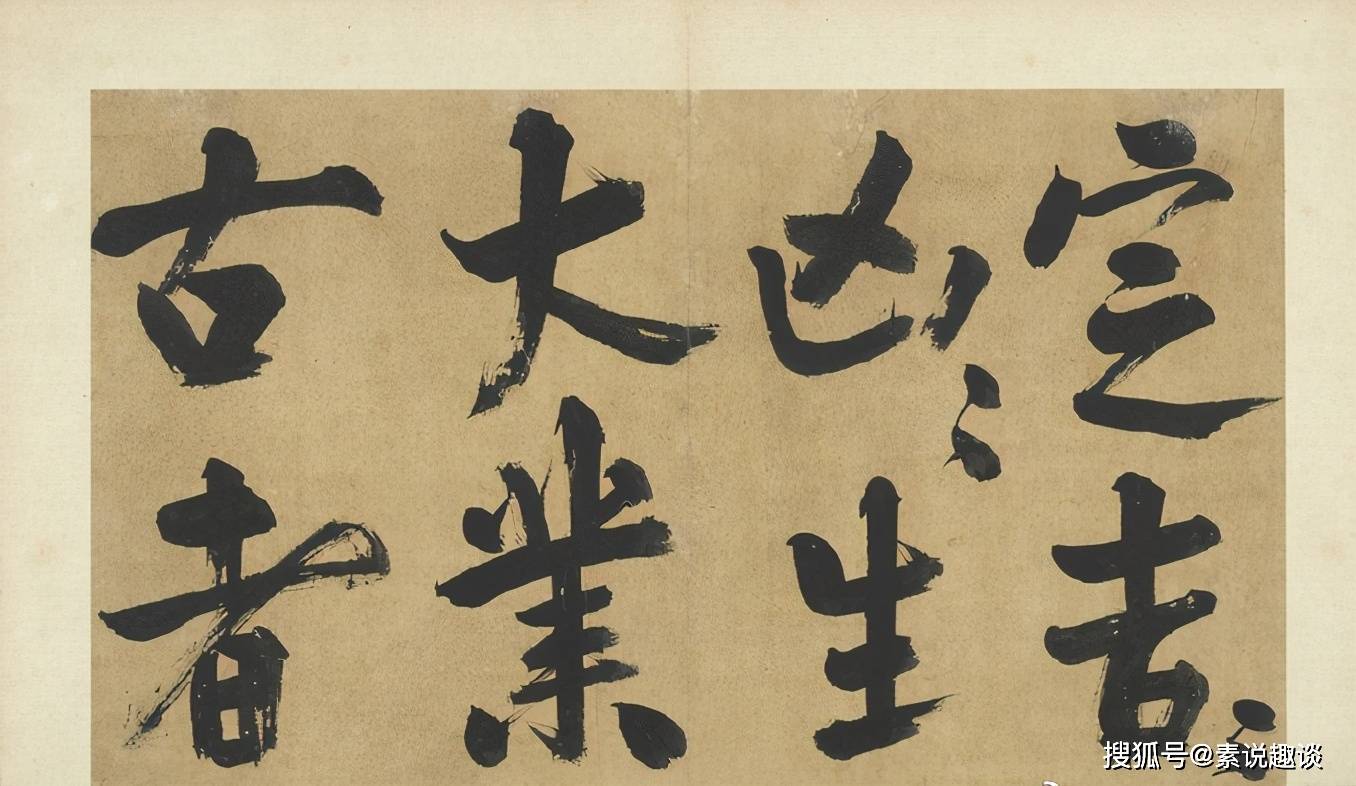 定吉〻
凶〻生
大業
古者
搜狐号@素说趣谈